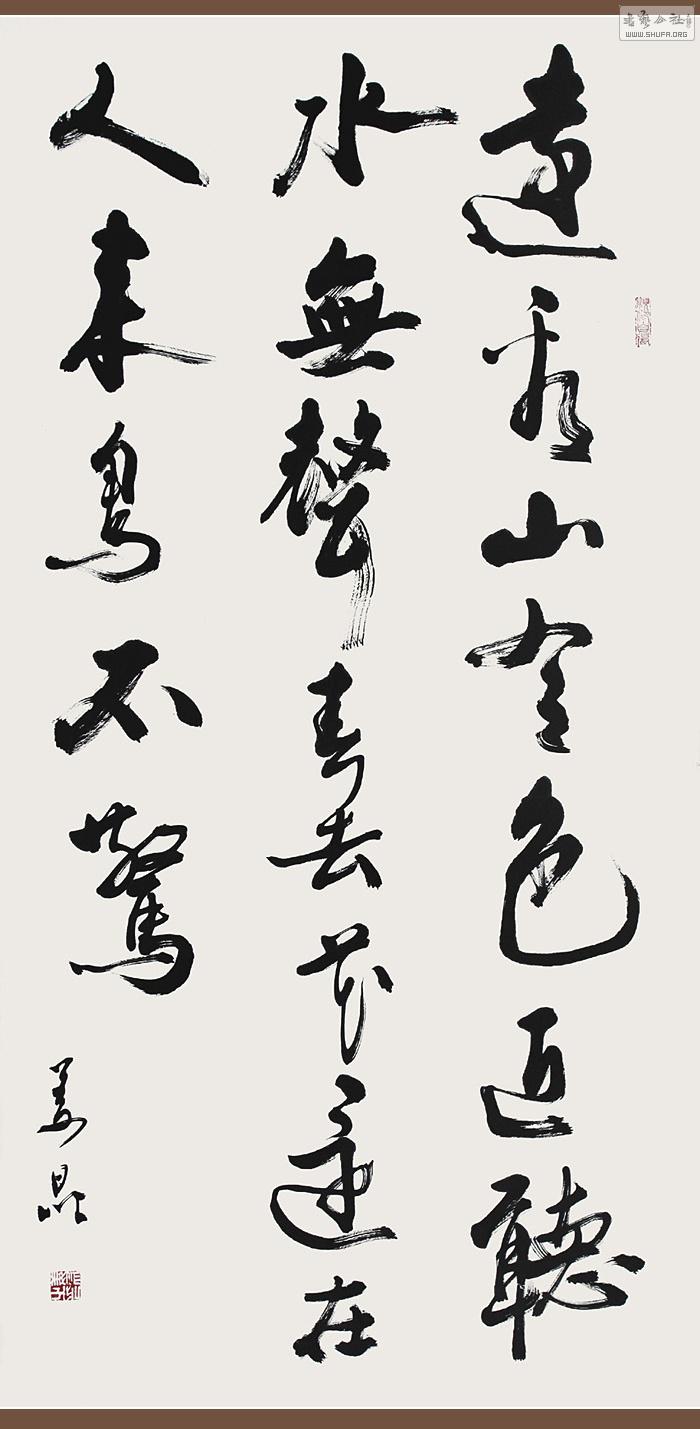 遠看山有色近聽
水無聲春去花還在
人來鳥不驚
姜晶
書藝公社
WWW.SHUFA.ORG